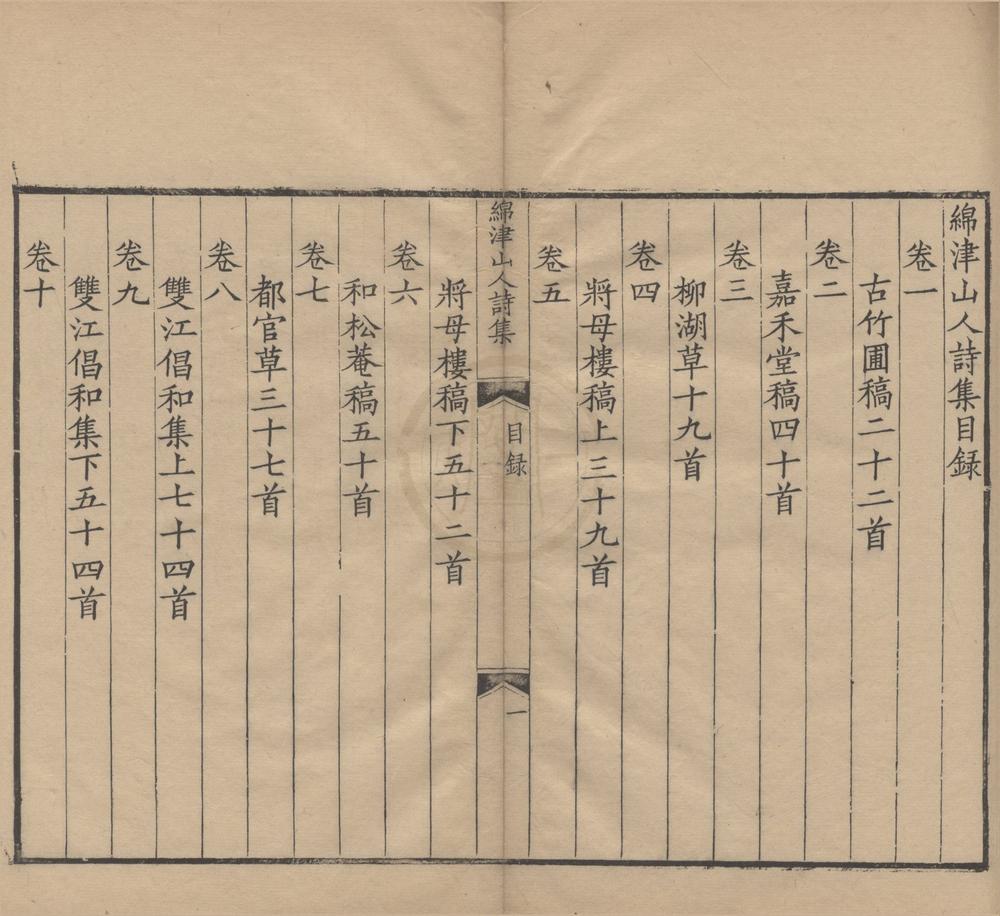 綿津山人詩集目録
卷一
古竹圃稿二十二首
卷二
嘉禾堂稿四十首
卷三
柳湖草十九首
卷四
將母樓稿上三十九首
卷五
綿津山人詩集
目録
一
將母樓稿下五十二首
卷六
和松菴稿五十首
卷七
都官草三十七首
卷八
雙江倡和集上七十四首
卷九
雙江倡和集下五十四首
卷十